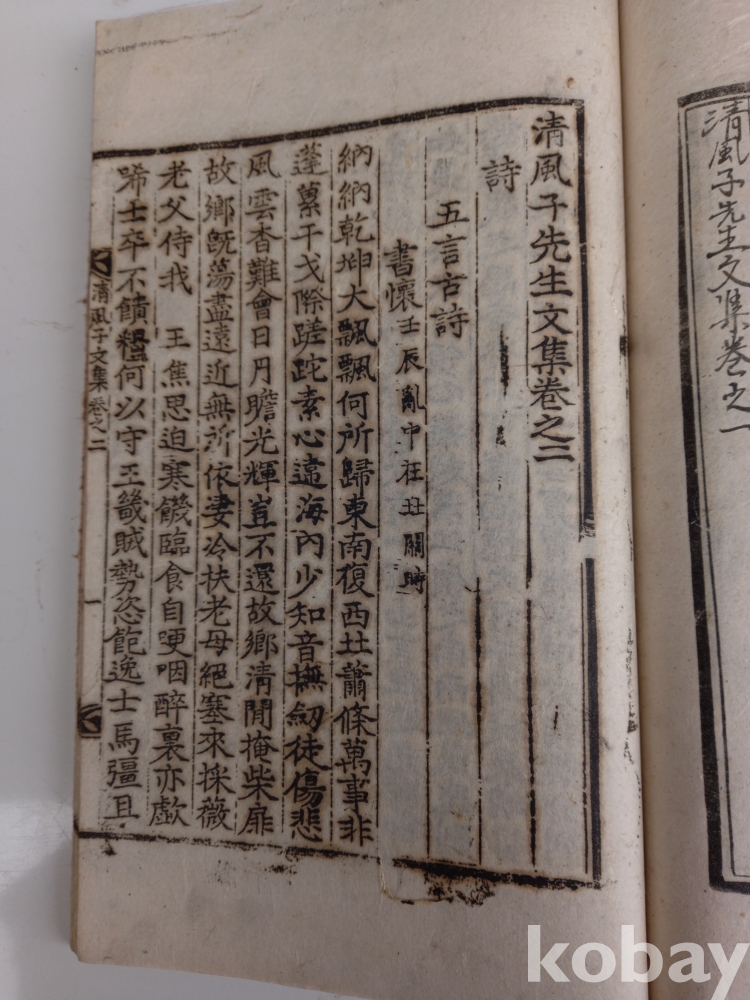 清風子先生文集卷之一
清風子先生文集卷之二
詩
五言古詩
書懷 壬辰亂中在北關時
納納乾坤大飄飄何所歸東南復西北蕭條萬事非
蓬藁干戈際蹉跎素心違海內少知音撫劒徒傷悲
風雲杳難會日月瞻光輝豈不還故鄉清閒掩柴扉
故鄉旣蕩盡遠近無所依妻冷扶老母絕塞來採薇
老父侍我 王焦思迫寒饑臨食自哽咽醉裏亦歔
唏士卒不饋糧何以守王畿賊勢恣飽逸士馬彊且
清風子文集 卷之二 一
kobay